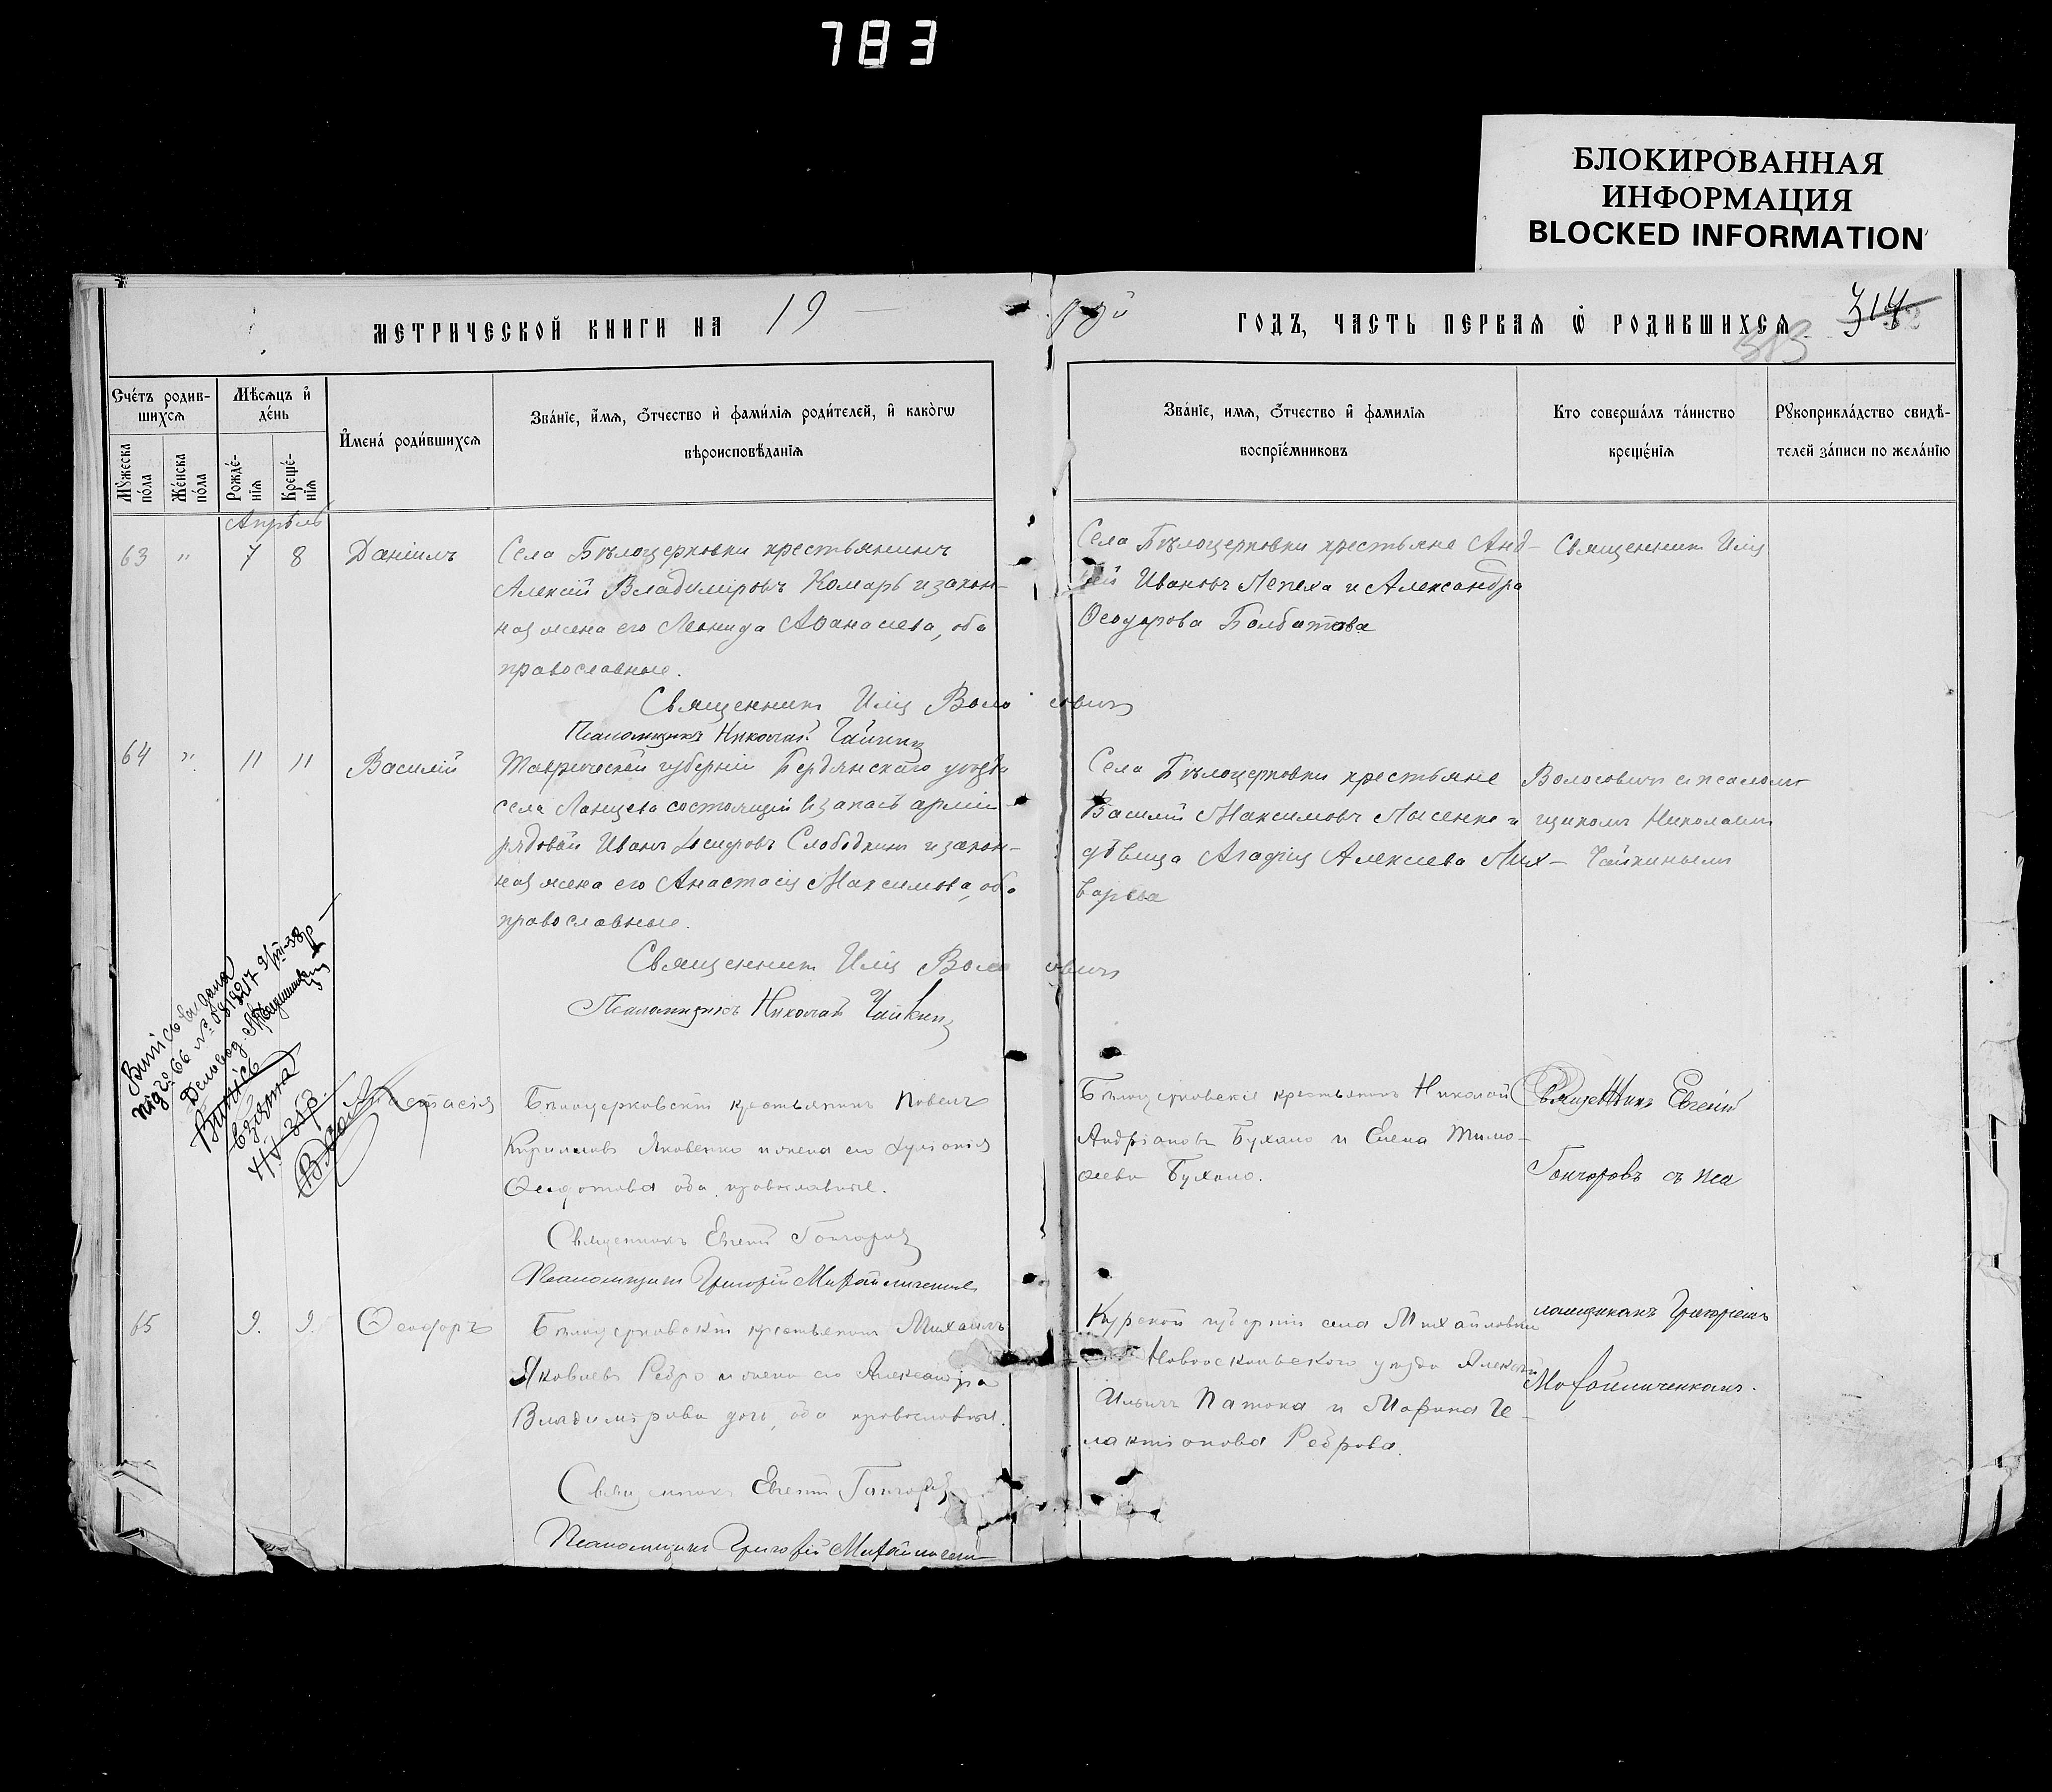 783
БЛОКИРОВАННАЯ
ИНФОРМАЦИЯ
BLOCKED INFORMATION
МЕТРИЧЕСКОЙ КНИГИ НА 19
ГОДЪ, ЧАСТЬ ПЕРВАЯ Ѡ РОДИВШИХСЯ
314
Счéтъ родив-
шихся
Мѣсяцъ и҆
дéнь
И҆менá роди́вшихся
Звáнїе, и҆́мя, ѻ҆́тчество и҆ фами́лїя роди́телей, и҆ какóгѡ
вѣроисповѣ́данїя
Мꙋ́жеска
пóла
Жéнска
пóла
Рождé-
нїя
Крещé-
нїя
Звáнїе, имя, ѻ҆́тчество и҆ фамилїя
воспрїéмниковъ
Кто совершáлъ тáинство
крещéнїя
Рꙋкоприклáдство свидѣ́-
телей зáписи по желáнїю
Апрѣль
63 " 7 8 Даніилъ
Села Бѣлоцерковки крестьянинъ
Алексій Владиміровъ Комарь и закон-
ная жена его Леонида Аѳанасіева, оба
православные.
Священникъ Илія Волосовичъ
Псаломщикъ Николай Чайкинъ
Села Бѣлоцерковки крестьяне Анд-
рей Ивановъ Лепеха и Александра
Ѳеодорова Болбатова
Священникъ Илія
64 " 11 11 Василій
Таврической губерніи Бердянскаго уѣзда
села Ланцева состоящій въ запасѣ арміи
рядовой Иванъ Іосифовъ Слободкинъ и закон-
ная жена его Анастасія Максимова, оба
православные.
Священникъ Илія Волосовичъ
Псаломщикъ Николай Чайкинъ
Села Бѣлоцерковки крестьяне
Василій Максимовъ Лысенко и
дѣвица Агафія Алексіева Лих-
варева
Волосовичъ съ псалом-
щикомъ Николаемъ
Чайкинымъ
Витісь видана
Витісь
взята
Анастасія
Бѣлоцерковскій крестьянинъ Павелъ
Кирилловъ Яковенко и жена его
Ѳедотова оба православные.
Священникъ Евгеній Гончаровъ
Псаломщикъ Григорій Михайличенко
Бѣлоцерковскіе крестьянинъ Николай
Андріановъ Бухало и Елена Тимо-
ѳеева Бухало.
Священникъ Евгеній
Гончаровъ съ пса
65 9. 9. Ѳеодоръ
Бѣлоцерковскій крестьянинъ Михаилъ
Яковлевъ Ребро и жена его Александра
Владимірова дочь, оба православные.
Священникъ Евгеній Гончаровъ
Псаломщикъ Григорій
Курской губерніи села Михайловки
Новооскольскаго уѣзда Алексѣй
Ильичъ Патока и Марина Ге-
лактіонова Реброва.
ломщикомъ Григоріемъ